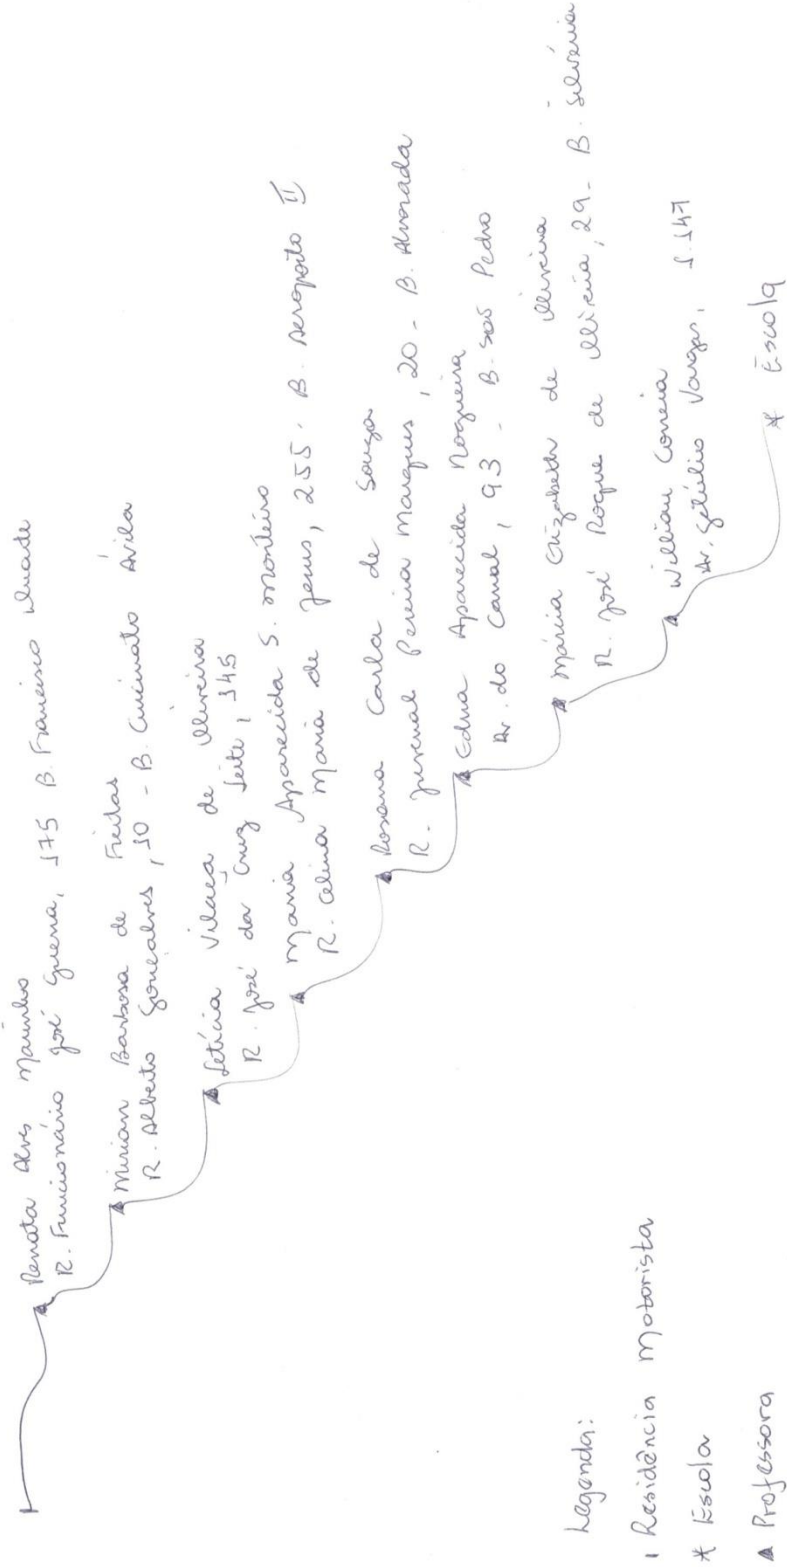 Renata Alves Marinho
R. Funcionário José Guerra, 175 B. Francisco Duarte
Mirian Barbosa de Freitas
R. Alberto Gonçalves, 10 - B. Cincinato Ávila
Letícia Vilaça de Oliveira
R. José da Cruz Leite, 145
Maria Aparecida S. Monteiro
R. Celina Maria de Jesus, 255. B. Aeroporto II
Rosana Carla de Souza
R. Juvenal Pereira Marques, 20 - B. Alvorada
Edna Aparecida Nogueira
Av. do Canal, 93 - B. São Pedro
Márcia Elizabeth de Oliveira
R. José Roque de Oliveira, 29 - B. Silvéria
Willian Correia
Av. Getúlio Vargas, 1.147
* Escola
Legenda:
Residência motorista
* Escola
▲ Professora